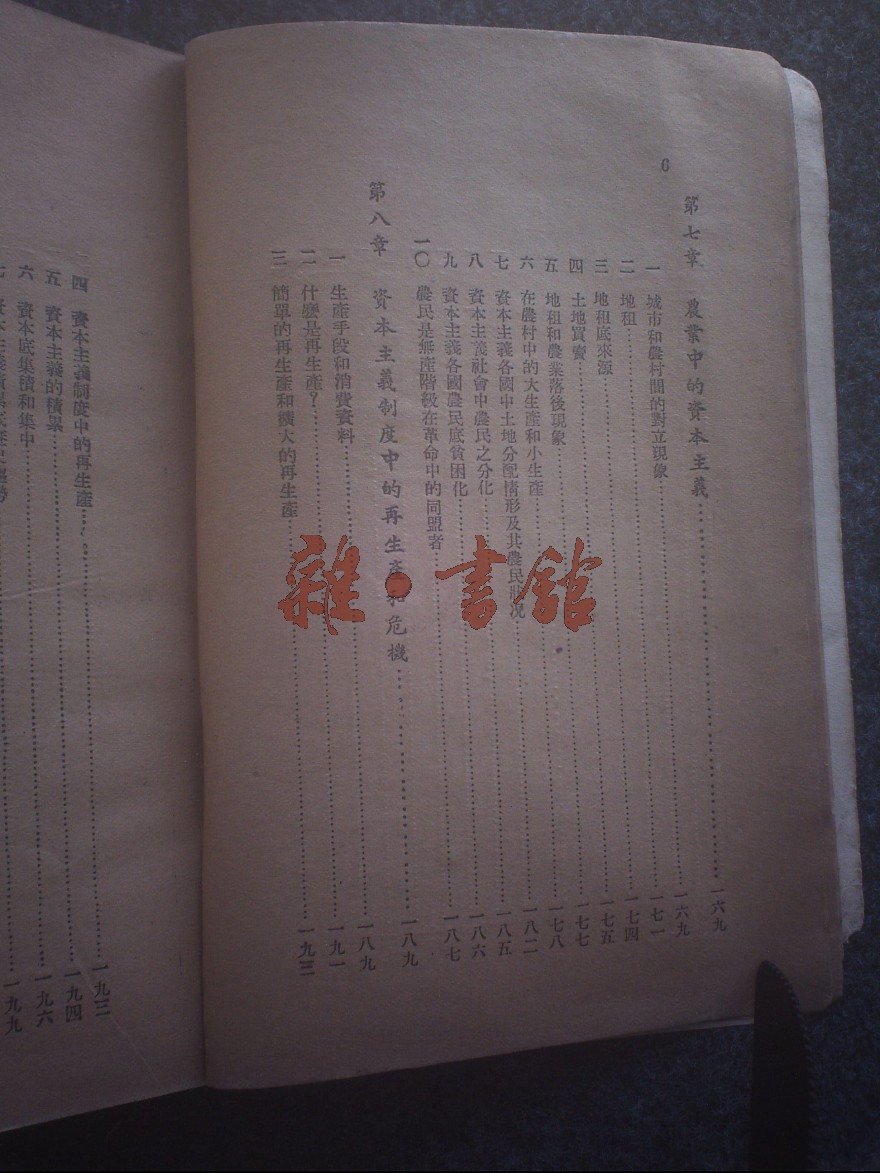 6
第七章 農業中的資本主義……一六九
一 城市和農村間的對立現象……一六九
二 地租……一七一
三 地租底來源……一七四
四 土地買賣……一七五
五 地租和農業落後現象……一七七
六 在農村中的大生產和小生產……一七八
七 資本主義各國中土地分配情形及其農民狀況……一八二
八 資本主義社會中農民之分化……一八五
九 資本主義各國農民底貧困化……一八六
一〇 農民是無產階級在革命中的同盟者……一八七
第八章 資本主義制度中的再生產和危機……一八九
一 生產手段和消費資料……一八九
二 什麼是再生產?……一九一
三 簡單的再生產和擴大的再生產……一九三
四 資本主義制度中的再生產……一九三
五 資本主義的積累……一九四
六 資本底集積和集中……一九六
七 資本主義積累底歷史趨勢……一九九
雜·書館